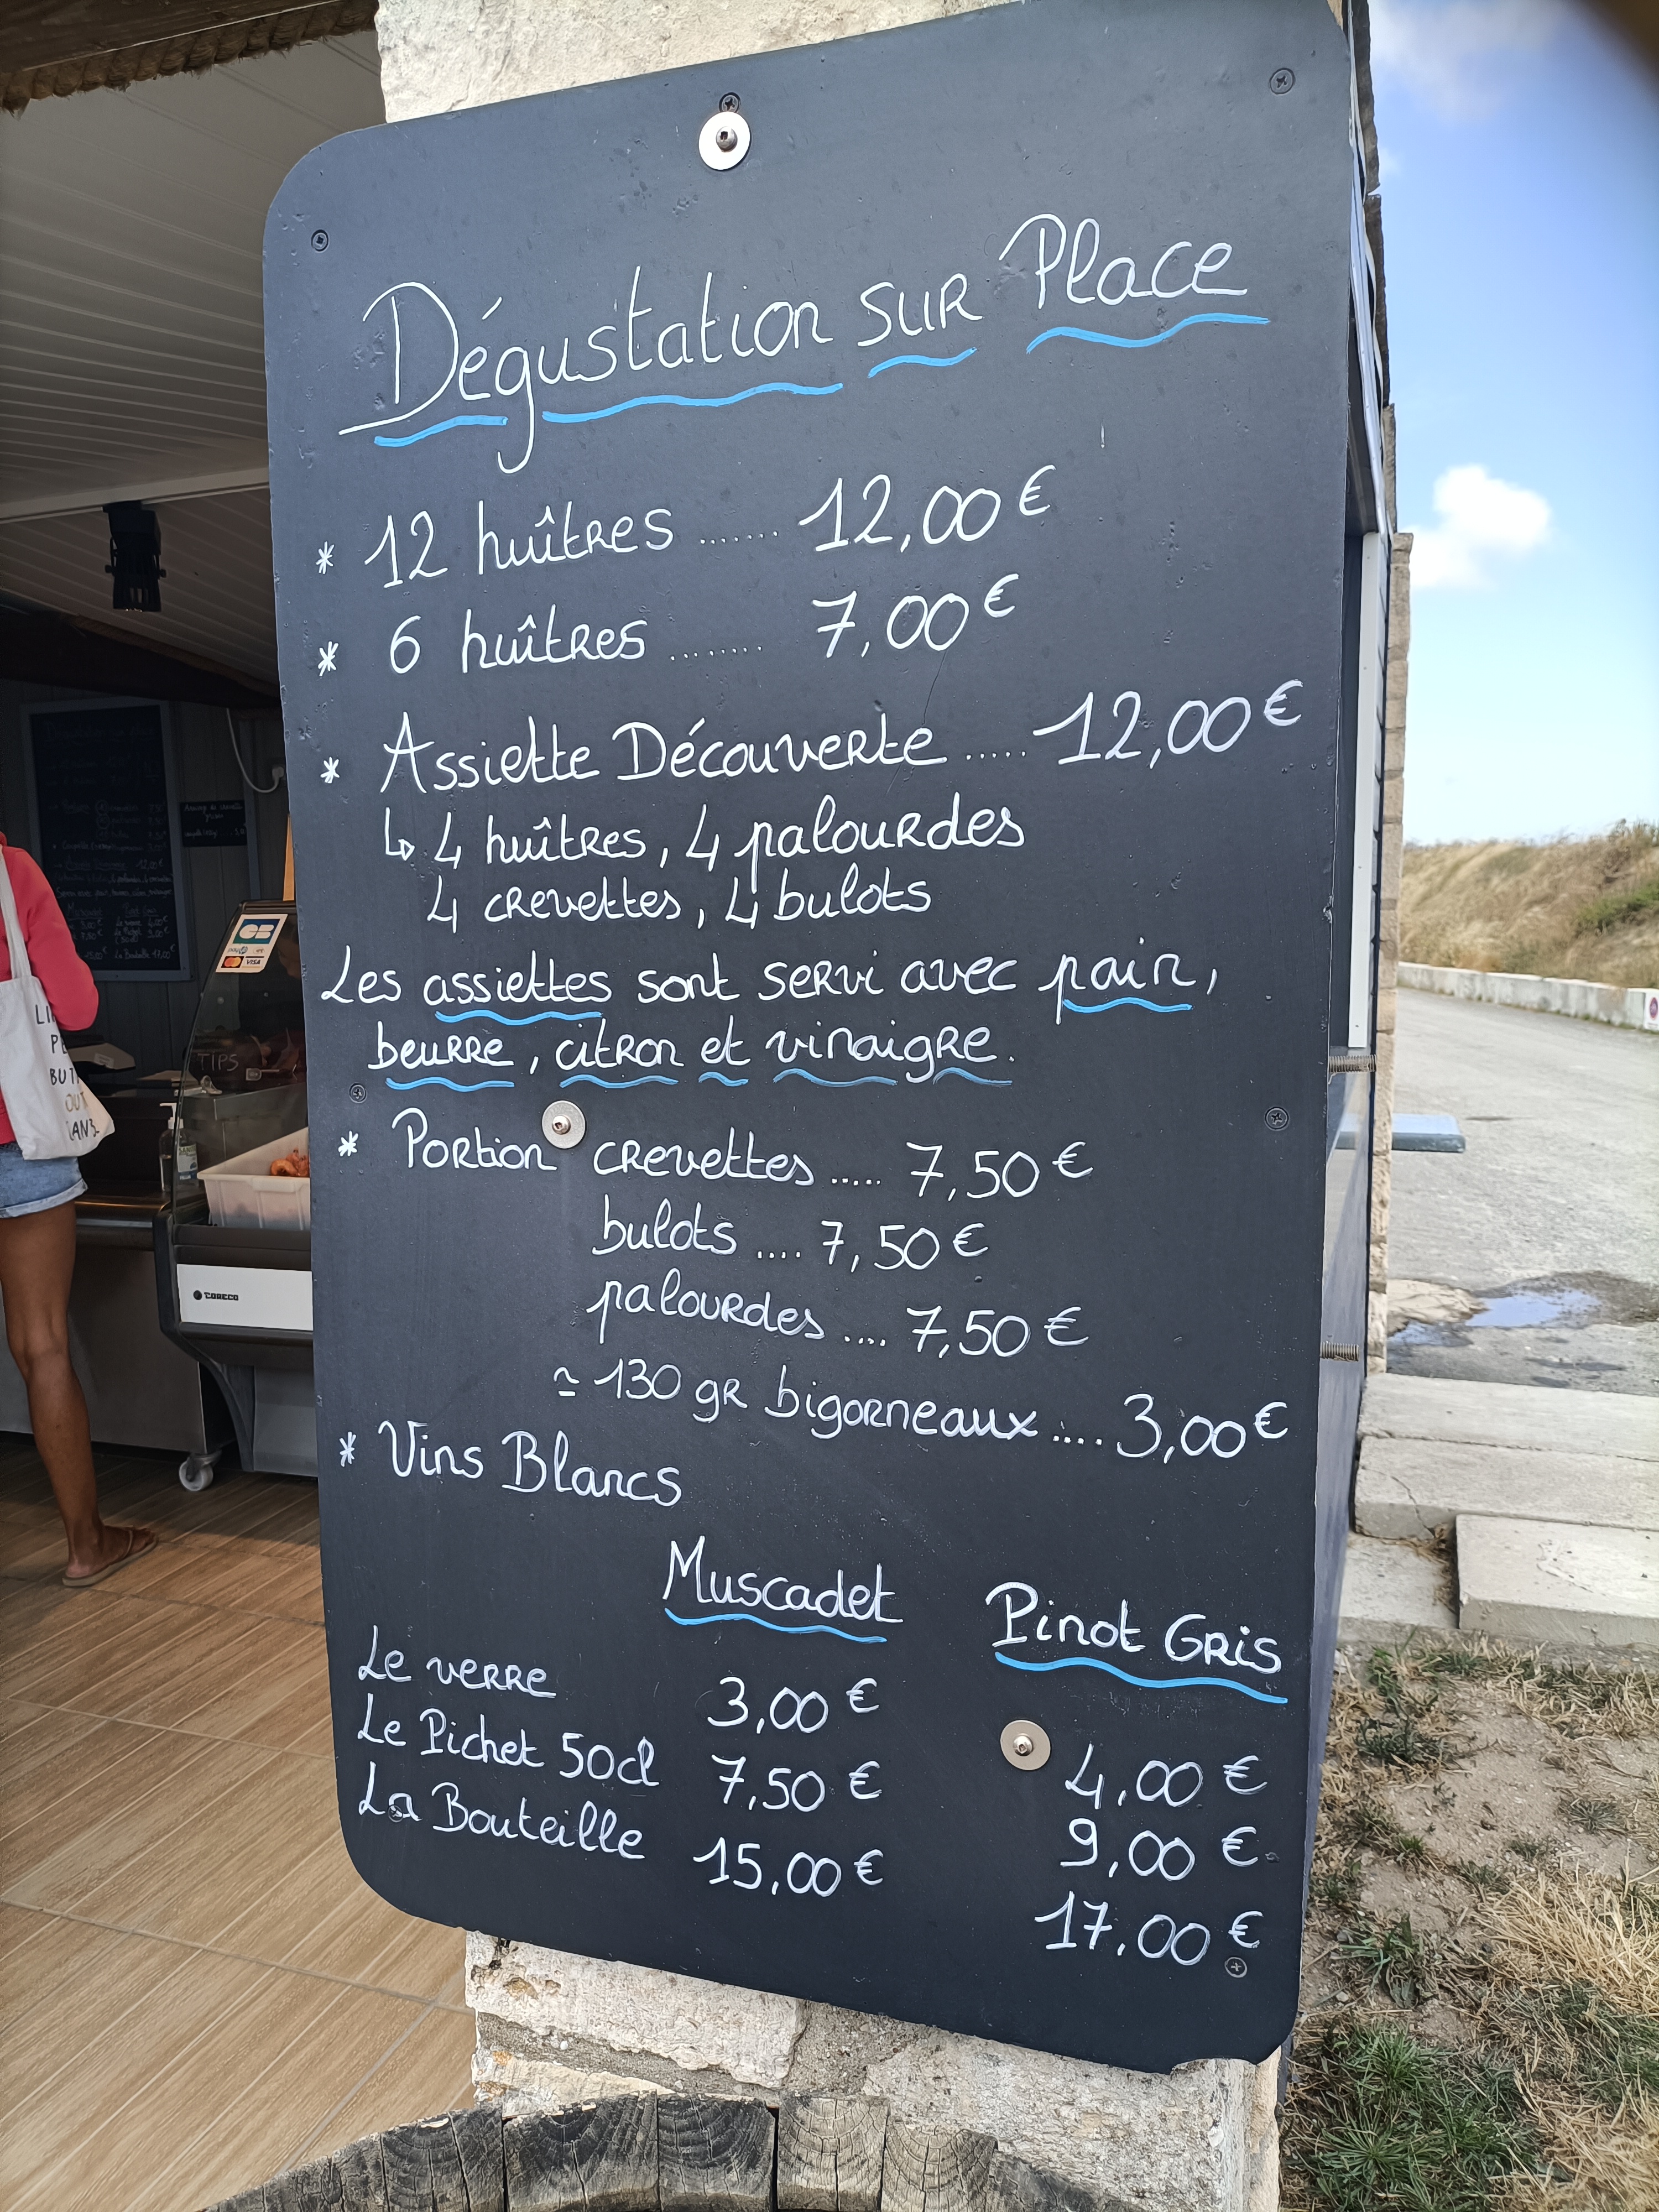 Dégustation sur Place
* 12 huîtres ....... 12,00€
* 6 huîtres ........ 7,00€
* Assiette Découverte ..... 12,00€
↳ 4 huîtres, 4 palourdes
4 crevettes, 4 bulots
Les assiettes sont servi avec pain,
beurre, citron et vinaigre.
* Portion crevettes ..... 7,50€
bulots .... 7,50€
palourdes .... 7,50€
≃ 130 gr bigorneaux .... 3,00€
* Vins Blancs
Muscadet Pinot Gris
Le verre 3,00€ 4,00€
Le Pichet 50cl 7,50€ 9,00€
La Bouteille 15,00€ 17,00€
CB
VISA
TIPS
CORECO